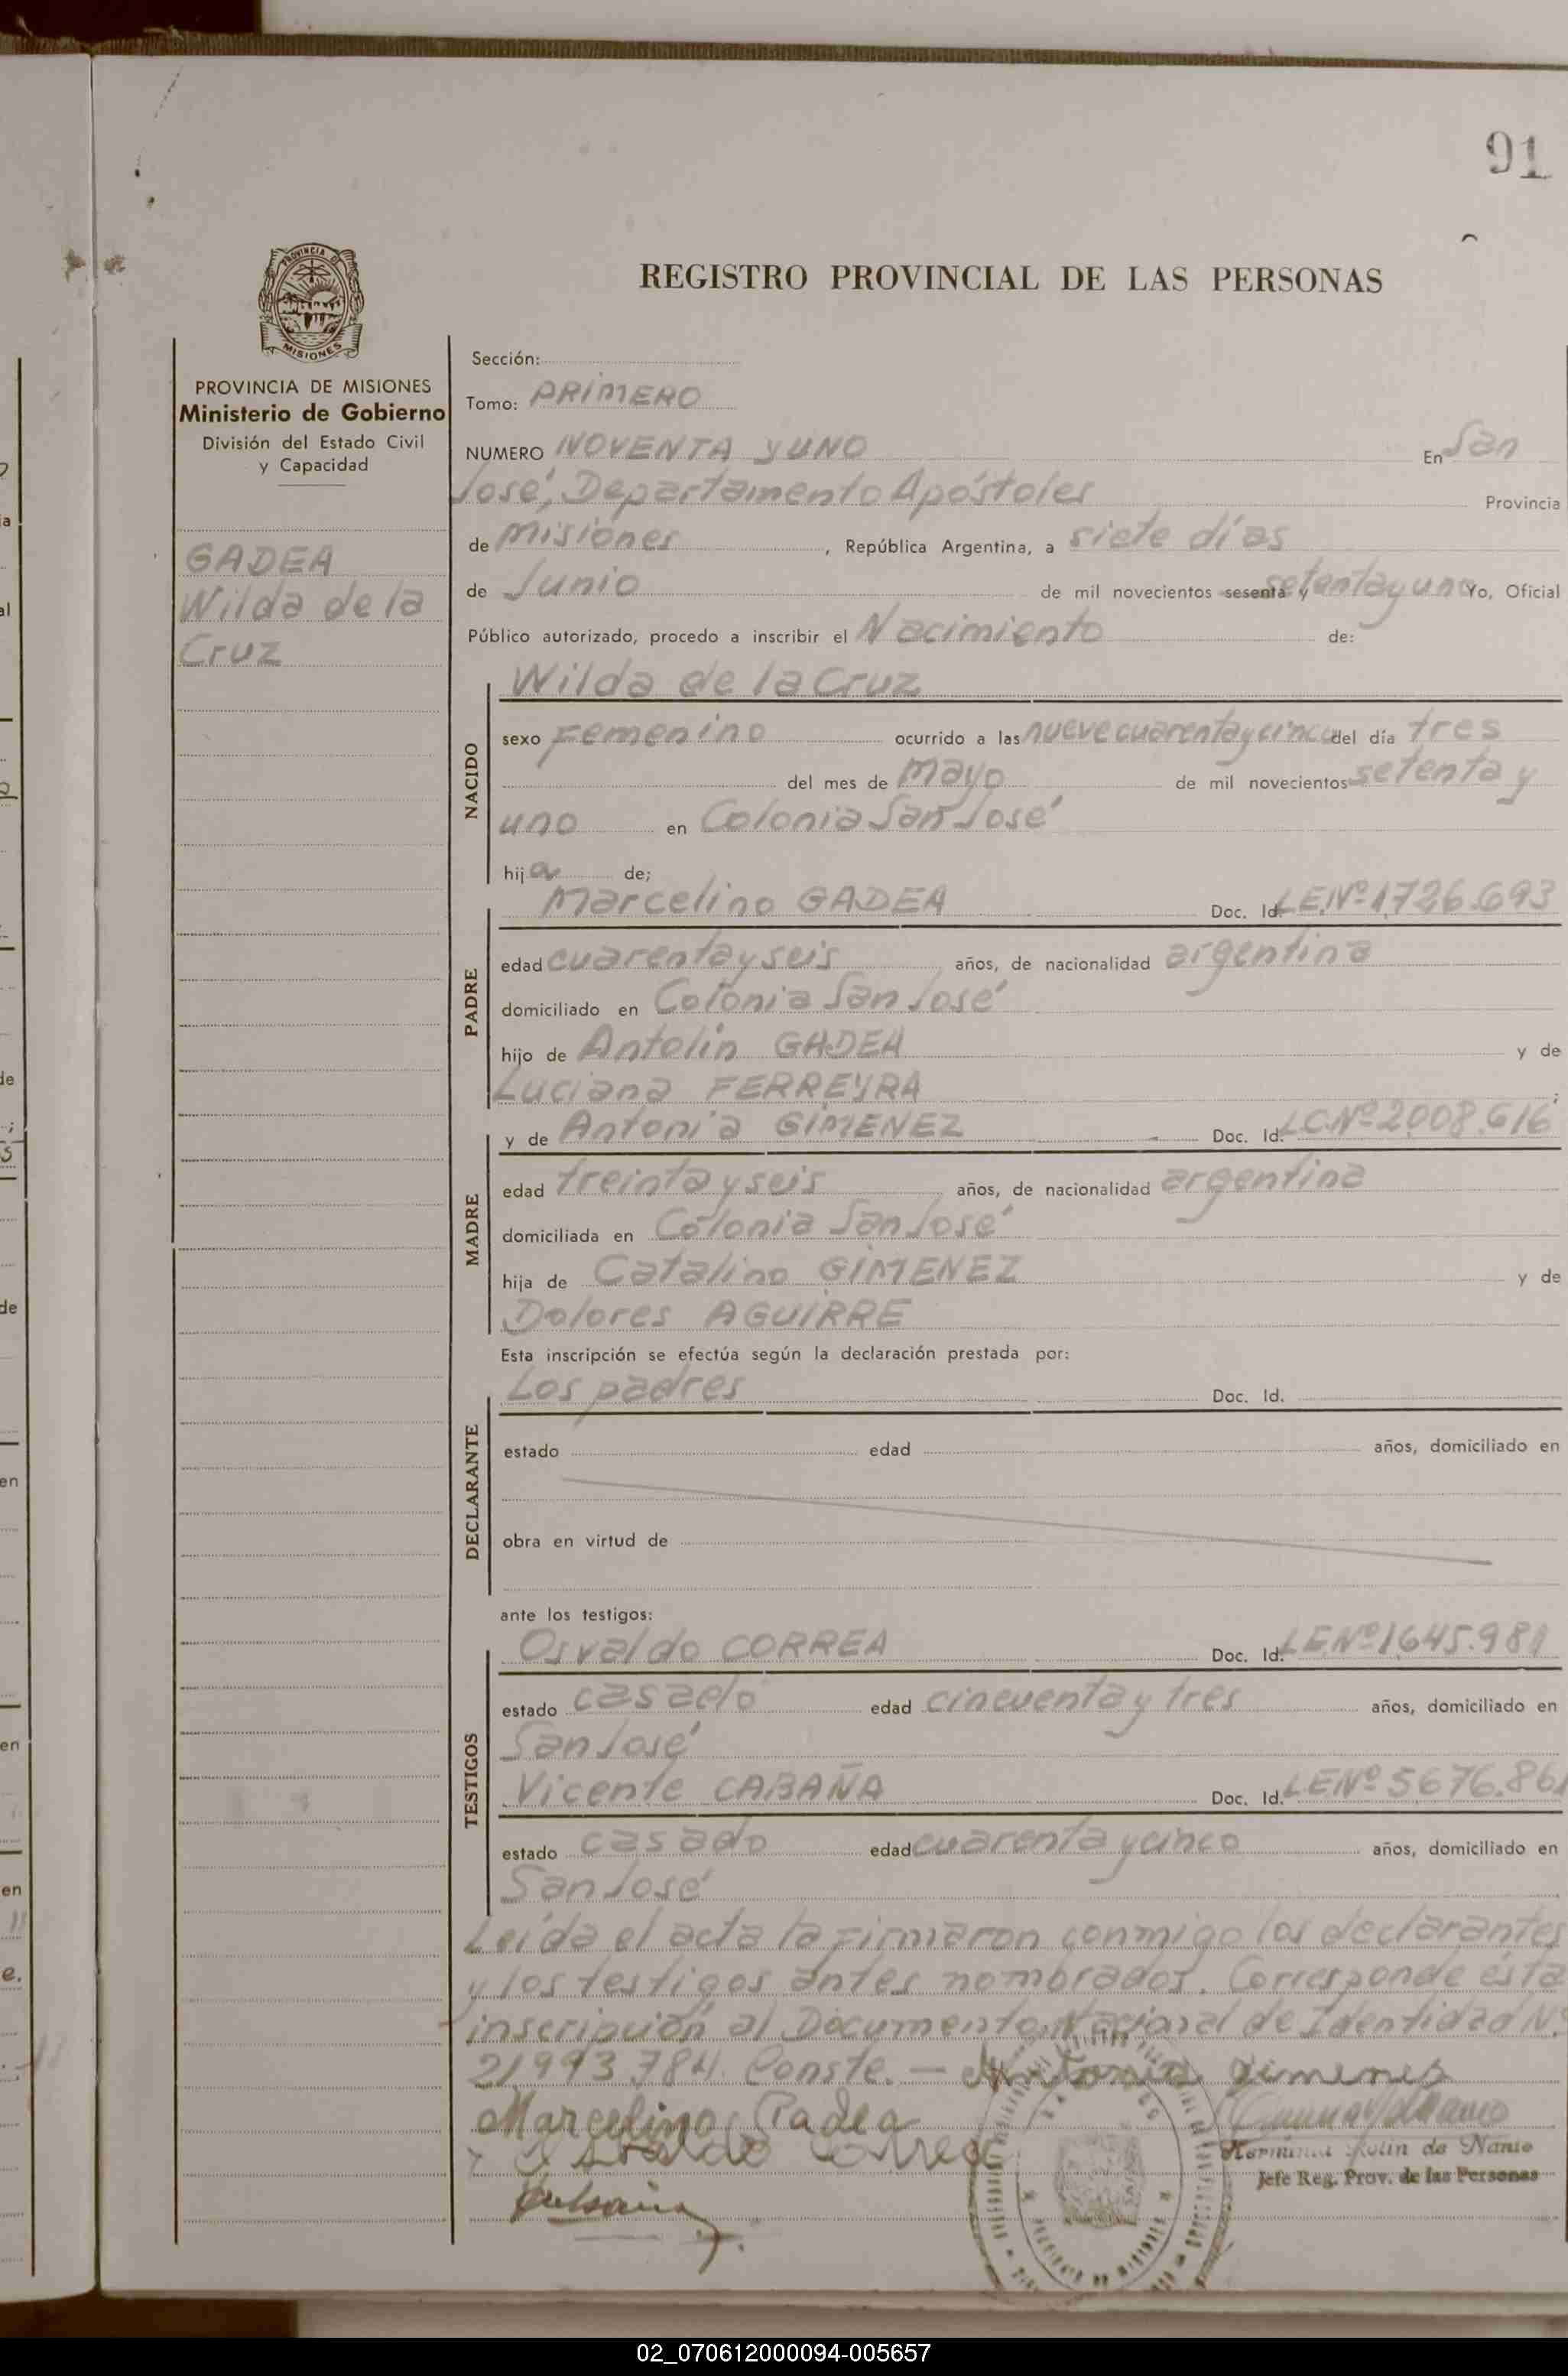 91
REGISTRO PROVINCIAL DE LAS PERSONAS
PROVINCIA DE MISIONES
Ministerio de Gobierno
División del Estado Civil
y Capacidad
GADEA
Wilda de la
Cruz
Sección:
Tomo: PRIMERO
NUMERO NOVENTA y UNO En San
José, Departamento Apóstoles Provincia
de Misiones, República Argentina, a siete días
de Junio de mil novecientos sesenta y setenta y uno Yo, Oficial
Público autorizado, procedo a inscribir el Nacimiento de:
NACIDO
Wilda de la Cruz
sexo Femenino ocurrido a las nueve cuarenta y cinco del día tres
del mes de Mayo de mil novecientos setenta y
uno en Colonia San José
hija de;
PADRE
Marcelino GADEA Doc. Id. LE.Nº 1726.693
edad cuarenta y seis años, de nacionalidad argentina
domiciliado en Colonia San José
hijo de Antolin GADEA y de
Luciana FERREYRA ;
MADRE
y de Antonia GIMENEZ Doc. Id. LC.Nº 2.008.616
edad treinta y seis años, de nacionalidad argentina
domiciliada en Colonia San José
hija de Catalino GIMENEZ y de
Dolores AGUIRRE
Esta inscripción se efectúa según la declaración prestada por:
DECLARANTE
Los padres Doc. Id.
estado edad años, domiciliado en
obra en virtud de
ante los testigos:
TESTIGOS
Osvaldo CORREA Doc. Id. LE.Nº 1.645.981
estado casado edad cincuenta y tres años, domiciliado en
San José
Vicente CABAÑA Doc. Id. LE.Nº 5676.861
estado casado edad cuarenta y cinco años, domiciliado en
San José
Leída el acta la firmaron conmigo los declarantes
y los testigos antes nombrados. Corresponde esta
inscripción al Documento Nacional de Identidad N.
21993.784. Conste.— Antonia Gimenes
Marcelino Gadea
Osvaldo Correa
de Nanio
Jefe Reg. Prov. de las Personas
02_070612000094-005657